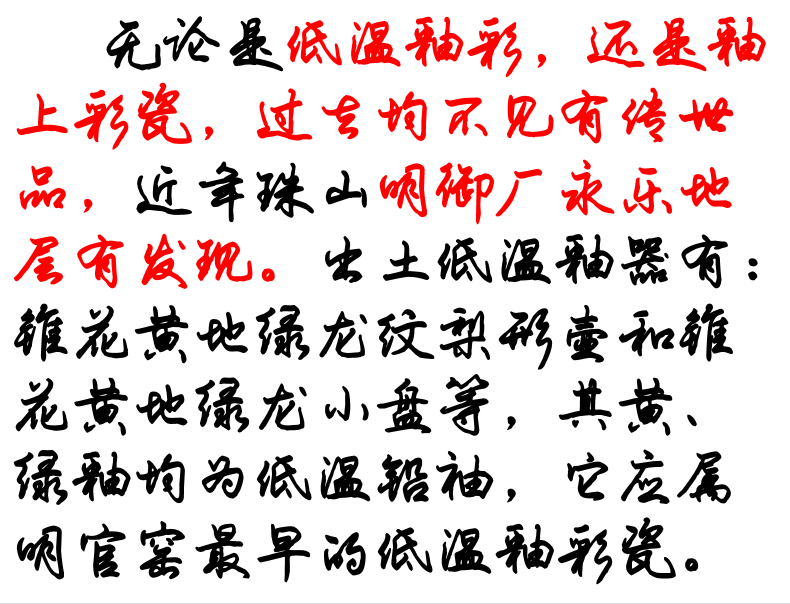 无论是低温釉彩，还是釉
上彩瓷，过去均不见有传世
品，近年珠山明御厂永乐地
层有发现。出土低温釉器有：
锥花黄地绿龙纹梨形壶和锥
花黄地绿龙小盘等，其黄、
绿釉均为低温铅袖，它应属
明官窑最早的低温釉彩瓷。